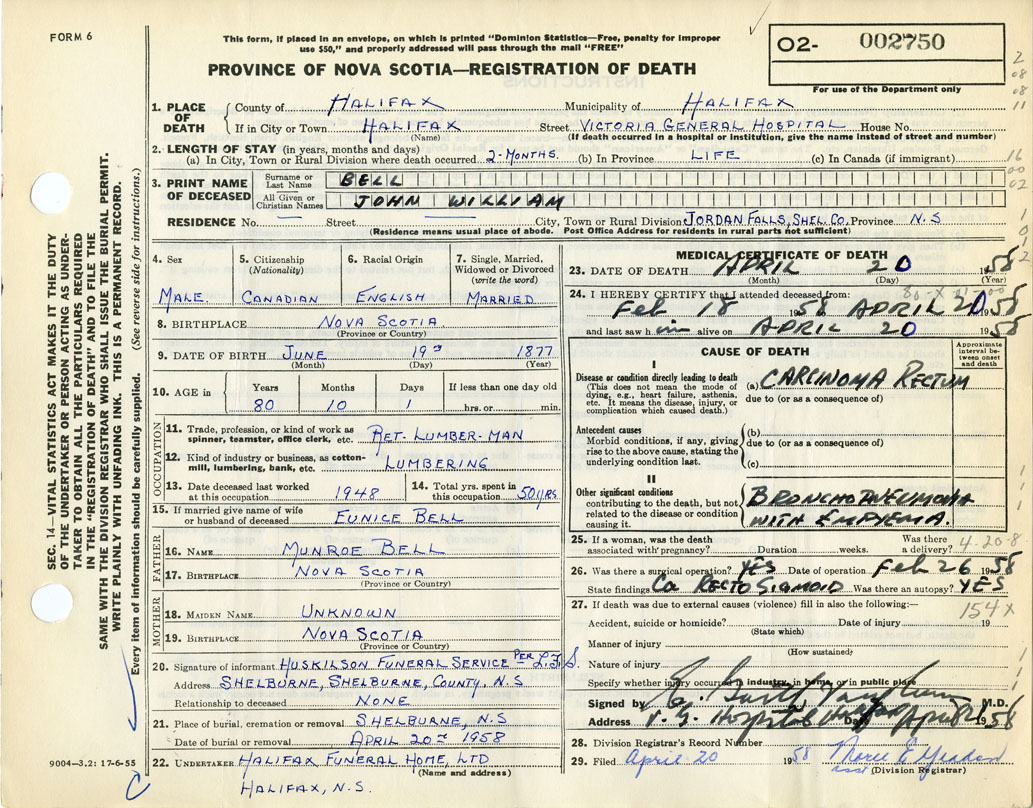 FORM 6
This form, if placed in an envelope, on which is printed "Dominion Statistics—Free, penalty for improper
use $50," and properly addressed will pass through the mail "FREE"
PROVINCE OF NOVA SCOTIA—REGISTRATION OF DEATH
02- 002750
For use of the Department only
SEC. 14—VITAL STATISTICS ACT MAKES IT THE DUTY
OF THE UNDERTAKER OR PERSON ACTING AS UNDER-
TAKER TO OBTAIN ALL THE PARTICULARS REQUIRED
IN THE "REGISTRATION OF DEATH" AND TO FILE THE
SAME WITH THE DIVISION REGISTRAR WHO SHALL ISSUE THE BURIAL PERMIT.
WRITE PLAINLY WITH UNFADING INK. THIS IS A PERMANENT RECORD.
Every item of information should be carefully supplied. (See reverse side for instructions.)
1. PLACE OF DEATH
County of HALIFAX Municipality of HALIFAX
If in City or Town HALIFAX Street VICTORIA GENERAL HOSPITAL House No.
(Name) (If death occurred in a hospital or institution, give the name instead of street and number)
2. LENGTH OF STAY (in years, months and days)
(a) In City, Town or Rural Division where death occurred 2-MONTHS. (b) In Province LIFE (c) In Canada (if immigrant)
3. PRINT NAME OF DECEASED
Surname or Last Name BELL
All Given or Christian Names JOHN WILLIAM
RESIDENCE No. Street City, Town or Rural Division JORDAN FALLS, SHEL. CO. Province N.S
(Residence means usual place of abode. Post Office Address for residents in rural parts not sufficient)
4. Sex
MALE.
5. Citizenship
(Nationality)
CANADIAN
6. Racial Origin
ENGLISH
7. Single, Married,
Widowed or Divorced
(write the word)
MARRIED
8. BIRTHPLACE NOVA SCOTIA.
(Province or Country)
9. DATE OF BIRTH JUNE 19 1877
(Month) (Day) (Year)
10. AGE in
Years Months Days If less than one day old
80 10 1 hrs. or min.
OCCUPATION
11. Trade, profession, or kind of work as
spinner, teamster, office clerk, etc. RET-LUMBER-MAN
12. Kind of industry or business, as cotton-
mill, lumbering, bank, etc. LUMBERING
13. Date deceased last worked
at this occupation 1948
14. Total yrs. spent in
this occupation 50 YRS.
15. If married give name of wife
or husband of deceased EUNICE BELL
FATHER
16. NAME MUNROE BELL
17. BIRTHPLACE NOVA SCOTIA
(Province or Country)
MOTHER
18. MAIDEN NAME UNKNOWN
19. BIRTHPLACE NOVA SCOTIA
(Province or Country)
20. Signature of informant HUSKILSON FUNERAL SERVICE PER L.F.S.
Address SHELBURNE, SHELBURNE, COUNTY, N.S
Relationship to deceased NONE
21. Place of burial, cremation or removal SHELBURNE, N.S
Date of burial or removal APRIL 20TH 1958
22. UNDERTAKER HALIFAX FUNERAL HOME, LTD
(Name and address)
HALIFAX, N.S.
9004—3.2: 17-6-55
MEDICAL CERTIFICATE OF DEATH
23. DATE OF DEATH APRIL 20 1958
(Month) (Day) (Year)
24. I HEREBY CERTIFY that I attended deceased from:
Feb 18 1958 to APRIL 20 1958
and last saw him alive on APRIL 20 1958
CAUSE OF DEATH
Approximate
interval be-
tween onset
and death
I
Disease or condition directly leading to death
(This does not mean the mode of
dying, e.g., heart failure, asthenia,
etc. It means the disease, injury, or
complication which caused death.)
(a) CARCINOMA RECTUM
due to (or as a consequence of)
Antecedent causes
Morbid conditions, if any, giving
rise to the above cause, stating the
underlying condition last.
(b)
due to (or as a consequence of)
(c)
II
Other significant conditions
contributing to the death, but not
related to the disease or condition
causing it.
BRONCHOPNEUMONIA
WITH EMPYEMA.
25. If a woman, was the death
associated with pregnancy? Duration weeks.
Was there
a delivery?
4-20-8
26. Was there a surgical operation? YES Date of operation Feb 26 1958
State findings Ca RECTOSIGMOID Was there an autopsy? YES
27. If death was due to external causes (violence) fill in also the following:—
154X
Accident, suicide or homicide? Date of injury 19
(State which)
Manner of injury
(How sustained)
Nature of injury
Specify whether injury occurred in industry, in home, or in public place
Signed by M.D.
Address V.G. Hospital Date April 1958
28. Division Registrar's Record Number
29. Filed April 20 1958
(Division Registrar)